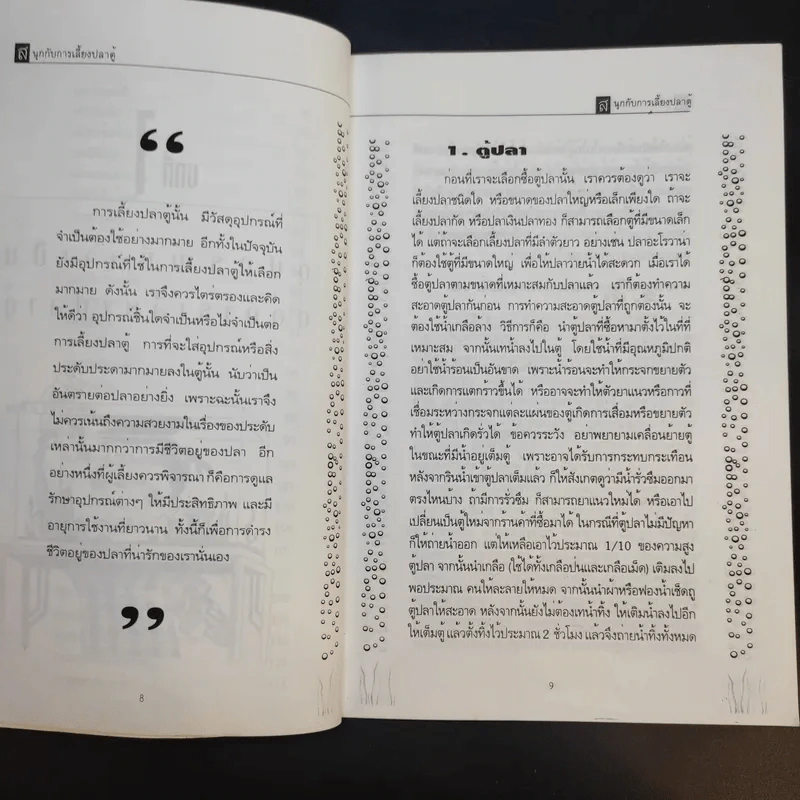 สนุกกับการเลี้ยงปลาตู้
“
การเลี้ยงปลาตู้นั้น มีวัสดุอุปกรณ์ที่
จำเป็นต้องใช้อย่างมากมาย อีกทั้งในปัจจุบัน
ยังมีอุปกรณ์ที่ใช้ในการเลี้ยงปลาตู้ให้เลือก
มากมาย ดังนั้น เราจึงควรไตร่ตรองและคิด
ให้ดีว่า อุปกรณ์ชิ้นใดจำเป็นหรือไม่จำเป็นต่อ
การเลี้ยงปลาตู้ การที่จะใส่อุปกรณ์หรือสิ่ง
ประดับประดามากมายลงในตู้นั้น นับว่าเป็น
อันตรายต่อปลาอย่างยิ่ง เพราะฉะนั้นเราจึง
ไม่ควรเน้นถึงความสวยงามในเรื่องของประดับ
เหล่านั้นมากกว่าการมีชีวิตอยู่ของปลา อีก
อย่างหนึ่งที่ผู้เลี้ยงควรพิจารณา ก็คือการดูแล
รักษาอุปกรณ์ต่างๆ ให้มีประสิทธิภาพ และมี
อายุการใช้งานที่ยาวนาน ทั้งนี้ก็เพื่อการดำรง
ชีวิตอยู่ของปลาที่น่ารักของเรานั่นเอง
”
8
สนุกกับการเลี้ยงปลาตู้
1. ตู้ปลา
ก่อนที่เราจะเลือกซื้อตู้ปลานั้น เราควรต้องดูว่า เราจะ
เลี้ยงปลาชนิดใด หรือขนาดของปลาใหญ่หรือเล็กเพียงใด ถ้าจะ
เลี้ยงปลากัด หรือปลาเงินปลาทอง ก็สามารถเลือกตู้ที่มีขนาดเล็ก
ได้ แต่ถ้าจะเลือกเลี้ยงปลาที่มีลำตัวยาว อย่างเช่น ปลาอะโรวาน่า
ก็ต้องใช้ตู้ที่มีขนาดใหญ่ เพื่อให้ปลาว่ายน้ำได้สะดวก เมื่อเราได้
ซื้อตู้ปลาตามขนาดที่เหมาะสมกับปลาแล้ว เราก็ต้องทำความ
สะอาดตู้ปลากันก่อน การทำความสะอาดตู้ปลาที่ถูกต้องนั้น จะ
ต้องใช้น้ำเกลือล้าง วิธีการก็คือ นำตู้ปลาที่ซื้อหามาตั้งไว้ในที่ที่
เหมาะสม จากนั้นเทน้ำลงไปในตู้ โดยใช้น้ำที่มีอุณหภูมิปกติ
อย่าใช้น้ำร้อนเป็นอันขาด เพราะน้ำร้อนจะทำให้กระจกขยายตัว
และเกิดการแตกร้าวขึ้นได้ หรืออาจจะทำให้ตัวยาแนวหรือกาวที่
เชื่อมระหว่างกระจกแต่ละแผ่นของตู้เกิดการเสื่อมหรือขยายตัว
ทำให้ตู้ปลาเกิดรั่วได้ ข้อควรระวัง อย่าพยายามเคลื่อนย้ายตู้
ในขณะที่มีน้ำอยู่เต็มตู้ เพราะอาจได้รับการกระทบกระเทือน
หลังจากรินน้ำเข้าตู้ปลาเต็มแล้ว ก็ให้สังเกตดูว่ามีน้ำรั่วซึมออกมา
ตรงไหนบ้าง ถ้ามีการรั่วซึม ก็สามารถยาแนวใหม่ได้ หรือเอาไป
เปลี่ยนเป็นตู้ใหม่จากร้านค้าที่ซื้อมาได้ ในกรณีที่ตู้ปลาไม่มีปัญหา
ก็ให้ถ่ายน้ำออก แต่ให้เหลือเอาไว้ประมาณ 1/10 ของความสูง
ตู้ปลา จากนั้นนำเกลือ (ใช้ได้ทั้งเกลือป่นและเกลือเม็ด) เติมลงไป
พอประมาณ คนให้ละลายให้หมด จากนั้นนำผ้าหรือฟองน้ำเช็ดถู
ตู้ปลาให้สะอาด หลังจากนั้นยังไม่ต้องเทน้ำทิ้ง ให้เติมน้ำลงไปอีก
ให้เต็มตู้ แล้วตั้งทิ้งไว้ประมาณ 2 ชั่วโมง แล้วจึงถ่ายน้ำทิ้งทั้งหมด
9